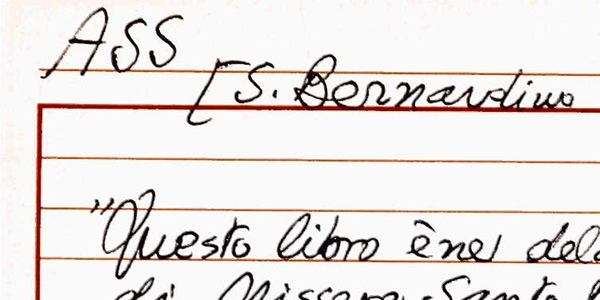 ASS
[S. Bernardino
"Questo libro ène
di Missere Santo